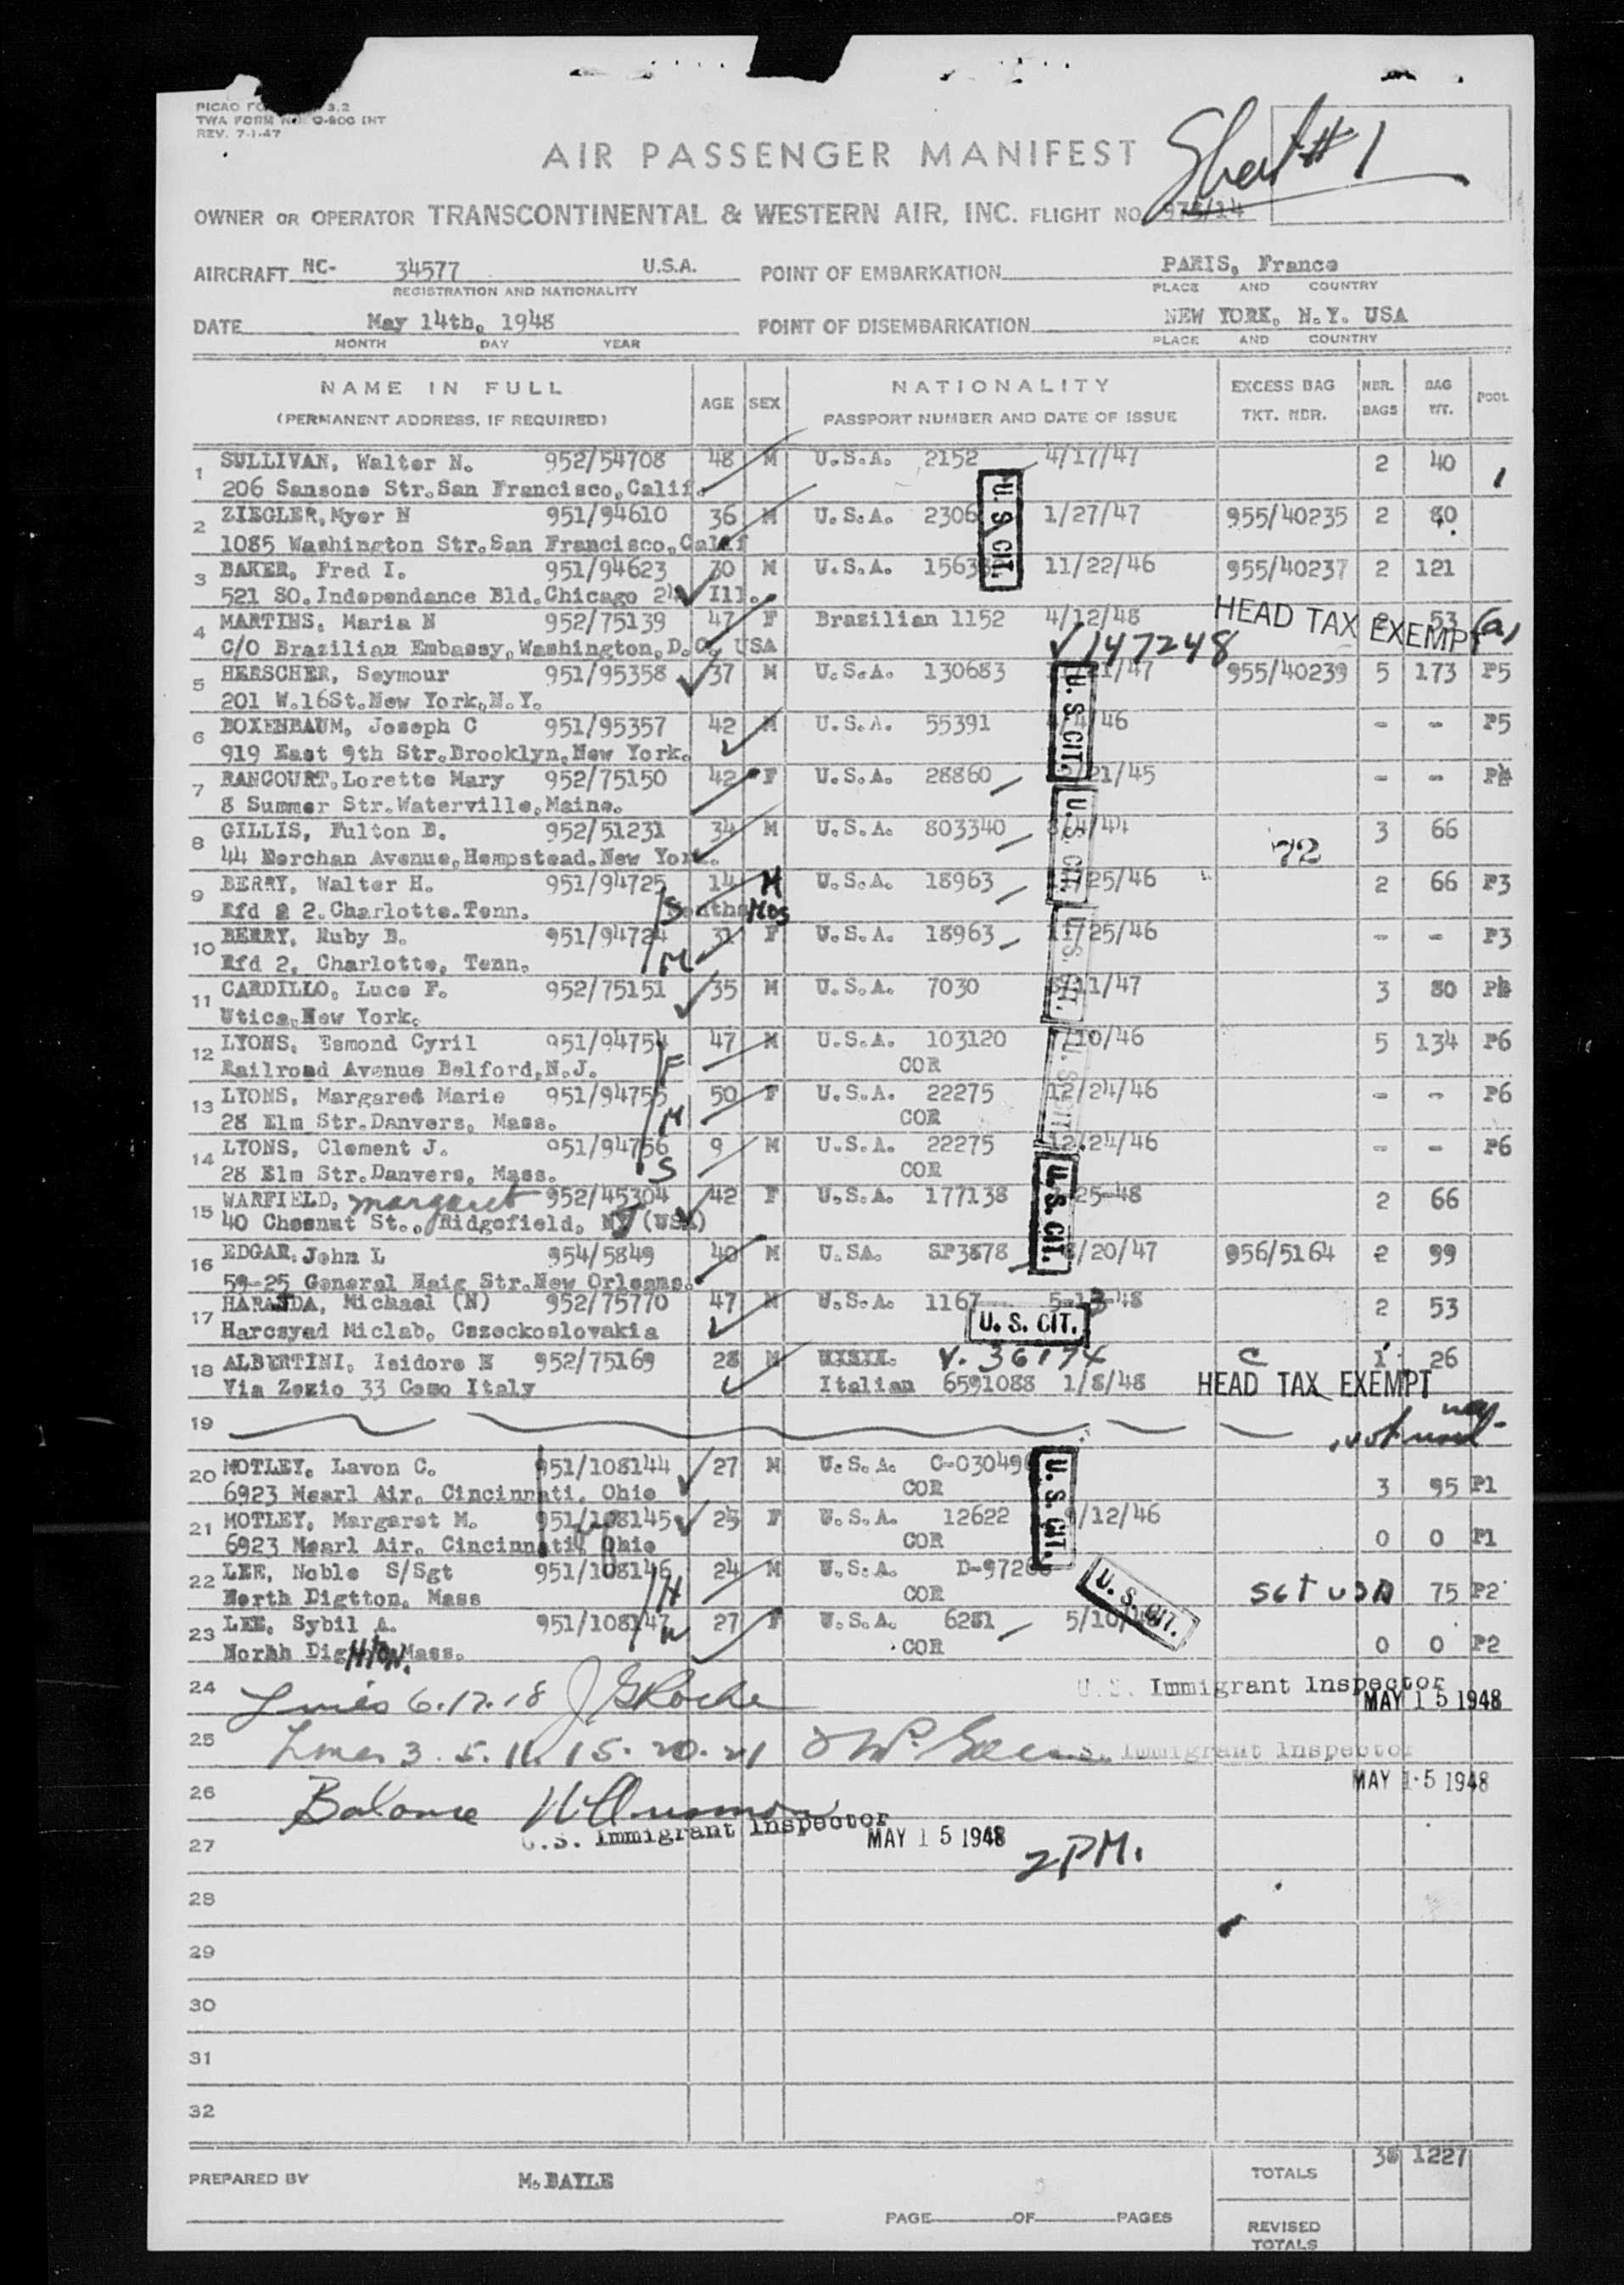 TWA FORM
REV. 7-1-47
Sheet #1
AIR PASSENGER MANIFEST
OWNER OR OPERATOR TRANSCONTINENTAL & WESTERN AIR, INC. FLIGHT NO. /14
AIRCRAFT NC- 34577 U.S.A. POINT OF EMBARKATION PARIS, France
REGISTRATION AND NATIONALITY PLACE AND COUNTRY
DATE May 14th, 1948 POINT OF DISEMBARKATION NEW YORK, N.Y. USA
MONTH DAY YEAR PLACE AND COUNTRY
NAME IN FULL AGE SEX NATIONALITY EXCESS BAG NBR. BAG POOL
(PERMANENT ADDRESS, IF REQUIRED) PASSPORT NUMBER AND DATE OF ISSUE TKT. NBR. BAGS WT.
1 SULLIVAN, Walter N. 952/54708 48 M U.S.A. 2152 4/17/47 2 40
206 Sansone Str.San Francisco,Calif.
2 ZIEGLER,Myer N 951/94610 36 M U.S.A. 2306 U.S CIT. 1/27/47 955/40235 2
1085 Washington Str.San Francisco,Calif
3 BAKER, Fred I. 951/94623 30 M U.S.A. 1563 11/22/46 955/40237 2 121
521 SO.Independance Bld.Chicago 24 Ill.
4 MARTINS, Maria N 952/75139 47 F Brazilian 1152 4/12/48 HEAD TAX EXEMPT 53
C/O Brazilian Embassy,Washington,D.C. USA 147248
5 HERSCHER, Seymour 951/95358 37 M U.S.A. 130683 /47 955/40239 5 173 P5
201 W.16St.New York,N.Y.
6 BOXENBAUM, Joseph C 951/95357 42 M U.S.A. 55391 U.S. CIT. 46 - - P5
919 East 9th Str.Brooklyn,New York.
7 RANCOURT,Lorette Mary 952/75150 42 F U.S.A. 28860 21/45 - -
8 Summer Str.Waterville,Maine.
8 GILLIS, Fulton B. 952/51231 34 M U.S.A. 803340 /4/44 3 66
44 Merchan Avenue,Hempstead.New York. U.S. CIT. 72
9 BERRY, Walter H. 951/94725 14 M U.S.A. 18963 25/46 2 66 P3
Rfd 2 2.Charlotte.Tenn. S Months Mos
10 BERRY, Ruby B. 951/94724 31 F U.S.A. 18963 11/25/46 - - P3
Rfd 2, Charlotte, Tenn. M
11 CARDILLO, Luce F. 952/75151 35 M U.S.A. 7030 /11/47 3 80
Utica,New York.
12 LYONS, Esmond Cyril 951/94754 47 M U.S.A. 103120 /10/46 5 134 P6
Railroad Avenue Belford,N.J. F COR
13 LYONS, Margared Marie 951/94755 50 F U.S.A. 22275 12/24/46 - - P6
28 Elm Str.Danvers, Mass. M COR
14 LYONS, Clement J. 951/94756 9 M U.S.A. 22275 12/24/46 - - P6
28 Elm Str.Danvers, Mass. S COR
15 WARFIELD, margaret 952/45304 42 F U.S.A. 177138 25-48 2 66
40 Chesnut St., Ridgefield, NJ (USA) U.S. CIT.
16 EDGAR, John L 954/5849 40 M U.SA. SP3878 /20/47 956/5164 2 99
59-25 General Haig Str.New Orleans.
17 HARANDA, Michael (N) 952/75770 47 M U.S.A. 1167 5-13-48 2 53
Harcsyad Miclab, Cszeckoslovakia U.S. CIT.
18 ALBERTINI, Isidore N 952/75169 28 M V. 36174 C 1 26
Via Zezio 33 Como Italy Italian 6591088 1/8/48 HEAD TAX EXEMPT
19 not used
20 MOTLEY, Lavon C. 951/108144 27 M U.S.A. C-03049
6923 Mearl Air, Cincinnati, Ohio COR 3 95 P1
21 MOTLEY, Margaret M. 951/108145 25 F U.S.A. 12622 U.S. CIT. /12/46
6923 Mearl Air, Cincinnati, Ohio COR 0 0 P1
22 LEE, Noble S/Sgt 951/108146 24 M U.S.A. D-972
North Digtton, Mass H COR U.S. CIT. SGT USA 75 P2
23 LEE, Sybil A. 951/108147 27 F U.S.A. 6281 5/10/
Norhh Dig HTON. Mass. W COR 0 0 P2
24 Lines 6.17.18 J G Roche U.S. Immigrant Inspector
MAY 15 1948
25 Lines 3. 5. 11. 15. 20. 21 Immigrant Inspector
MAY 15 1948
26 Balance
U.S. Immigrant Inspector
27 MAY 15 1948 2PM.
28
29
30
31
32
TOTALS 38 1227
PREPARED BY M. BAYLE
PAGE OF PAGES
REVISED
TOTALS